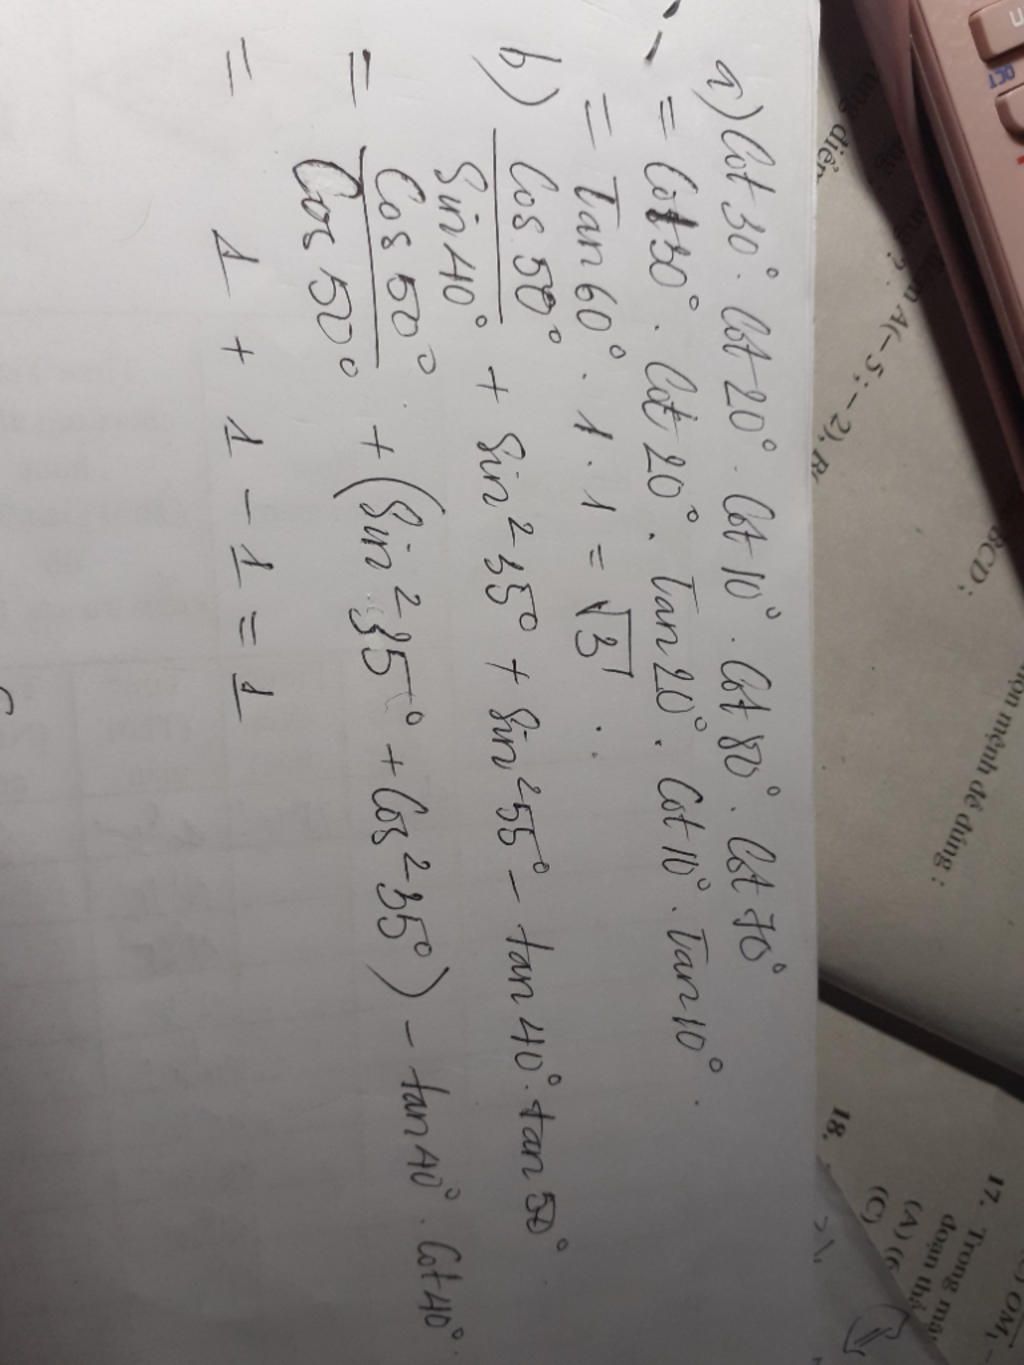 a) Cot 30° . Cot 20° . Cot 10° . Cot 80° . Cot 70°
= Cot 30° . Cot 20° . Tan 20° . Cot 10° . Tan 10° .
= Tan 60° . 1 . 1 = √3
b) Cos 50° / Sin 40° + Sin² 35° + Sin² 55° - tan 40° . tan 50°
= Cos 50° / Cos 50° + (Sin² 35° + Cos² 35°) - tan 40° . Cot 40° .
= 1 + 1 - 1 = 1
A(-5; -2), B(
BCD;
mệnh đề đúng :
17. Trong
đoạn
(A) (
(C)
18.